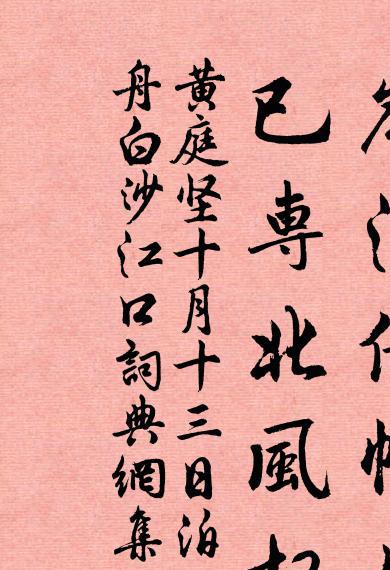 已専北風
黄庭坚十月十三日泊
舟白沙江口詞典網集